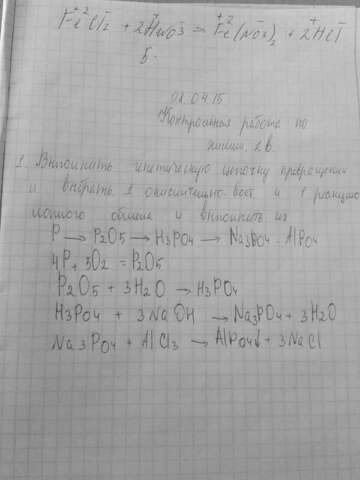 +2 - + - +2 - + -
FeCl2 + 2HNO3 = Fe(NO3)2 + 2HCl
5.
02.04.15
Контрольная работа по
химии. 2в.
1. Выполнить генетическую цепочку превращений
и выбрать 1 окислительно-восст. и 1 реакцию
ионного обмена и выполнить их
P → P2O5 → H3PO4 → Na3PO4 - AlPO4
4P + 5O2 = P2O5
P2O5 + 3H2O → H3PO4
H3PO4 + 3NaOH → Na3PO4 + 3H2O
Na3PO4 + AlCl3 → AlPO4↓ + 3NaCl